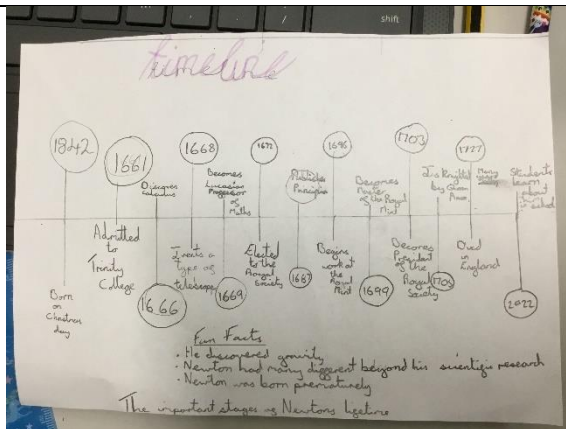 shift
timeline
1842
Born
on
Christmas
day
1661
Admitted
to
Trinity
College
Discovers
calculus
1666
1668
Invents a
type of
telescope
Becomes
Lucasian
Professor
of
Maths
1669
1672
Elected
to the
Royal
Society
Publishes
Principia
1687
1696
Begins
work at
the
Royal
Mint
Becomes
Master
of the Royal
Mint
1699
1703
Becomes
President
of the
Royal
Society
Is Knighted
by Queen
Anne
1705
1727
Died
in
England
Many
years
Students
learn
about
it in school
2022
Fun Facts
· He discovered gravity
· Newton had many different beyond his scientific research
· Newton was born prematurely
The important stages of Newtons lifetime